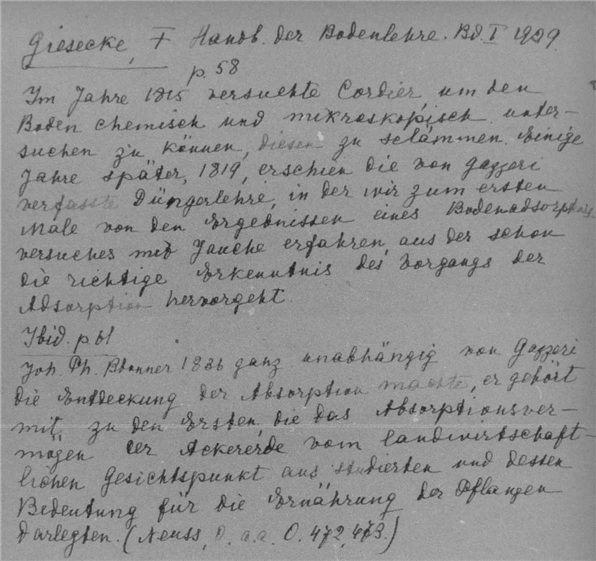 Giesecke, F Handb. der Bodenlehre. Bd. I 1929
p. 58
Im Jahre 1815 versuchte Cordier um den
Boden chemisch und mikroskopisch unter-
suchen zu können, diesen zu schlämmen. Einige
Jahre später, 1819, erschien die von Gazzeri
verfasste Düngerlehre, in der wir zum ersten
Male von den Ergebnissen eines Bodenadsorptions-
versuches mit Jauche erfahren, aus der schon
die richtige Erkenntnis des Vorgangs der
Adsorption hervorgeht.
Ibid. p 61
Joh. Ph. Bronner 1836 ganz unabhängig von Gazzeri
die Entdeckung der Absorption machte, er gehört
mit zu den Ersten, die das Absorptionsver-
mögen der Ackererde vom landwirtschaft-
lichen Gesichtspunkt aus studierten und dessen
Bedeutung für die Ernährung der Pflanzen
darlegten. (Neuss, O. a.a. O. 472, 473.)